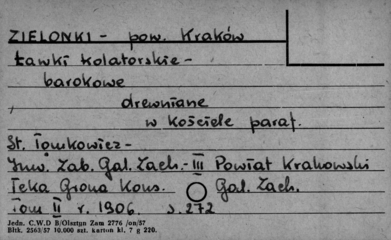 ZIELONKI - pow. Kraków
Ławki kolatorskie -
barokowe
drewniane
w kościele paraf.
St. Tomkowicz -
Inw. Zab. Gal. Zach. - III Powiat Krakowski
Teka Grona Kons. Gal. Zach.
Tom II r. 1906. s. 272
Jedn. C.W.D B/Olsztyn Zam 2776 /on/57
Bltk. 2563/57 10.000 szt. karton kl. 7 g 220.